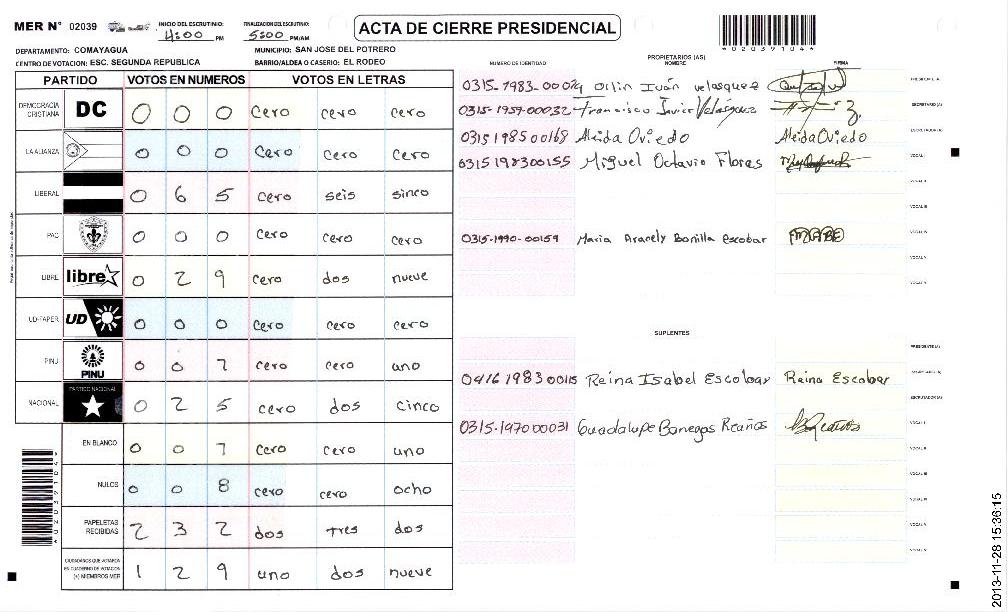 MER Nº 02039
INICIO DEL ESCRUTINIO: 4:00 PM
FINALIZACION DEL ESCRUTINIO: 5:00 PM/AM
ACTA DE CIERRE PRESIDENCIAL
* 0 2 0 3 9 1 0 4 *
DEPARTAMENTO: COMAYAGUA
MUNICIPIO: SAN JOSE DEL POTRERO
CENTRO DE VOTACION: ESC. SEGUNDA REPUBLICA
BARRIO/ALDEA O CASERIO: EL RODEO
PARTIDO VOTOS EN NUMEROS VOTOS EN LETRAS
DEMOCRACIA CRISTIANA DC 0 0 0 cero cero cero
LA ALIANZA 0 0 0 cero cero cero
LIBERAL 0 6 5 cero seis sinco
PAC 0 0 0 cero cero cero
LIBRE libre 0 2 9 cero dos nueve
UD-FAPER UD 0 0 0 cero cero cero
PINU PINU 0 0 1 cero cero uno
NACIONAL PARTIDO NACIONAL 0 2 5 cero dos cinco
EN BLANCO 0 0 1 cero cero uno
NULOS 0 0 8 cero cero ocho
PAPELETAS RECIBIDAS 2 3 2 dos tres dos
CIUDADANOS QUE VOTARON EN CUADERNO DE VOTACION (+) MIEMBROS MER 1 2 9 uno dos nueve
PROPIETARIOS (AS)
NUMERO DE IDENTIDAD NOMBRE FIRMA
Orlin Iván Velasquez PRESIDENTE (A)
0315-1957-00032 Francisco Javier Velásquez SECRETARIO (A)
0315 1985 00168 Aleida Oviedo Aleida Oviedo ESCRUTADOR (A)
0315 1983 00155 Miguel Octavio Flores VOCAL I
VOCAL II
VOCAL III
0315-1990-00159 Maria Aracely Bonilla Escobar MABE VOCAL IV
VOCAL V
SUPLENTES
PRESIDENTE (A)
0416 1983 00115 Reina Isabel Escobar Reina Escobar SECRETARIO (A)
ESCRUTADOR (A)
0315-1970 00031 Guadalupe Banegas Reaños VOCAL I
VOCAL II
VOCAL III
VOCAL IV
VOCAL V
2013-11-28 15:36:15